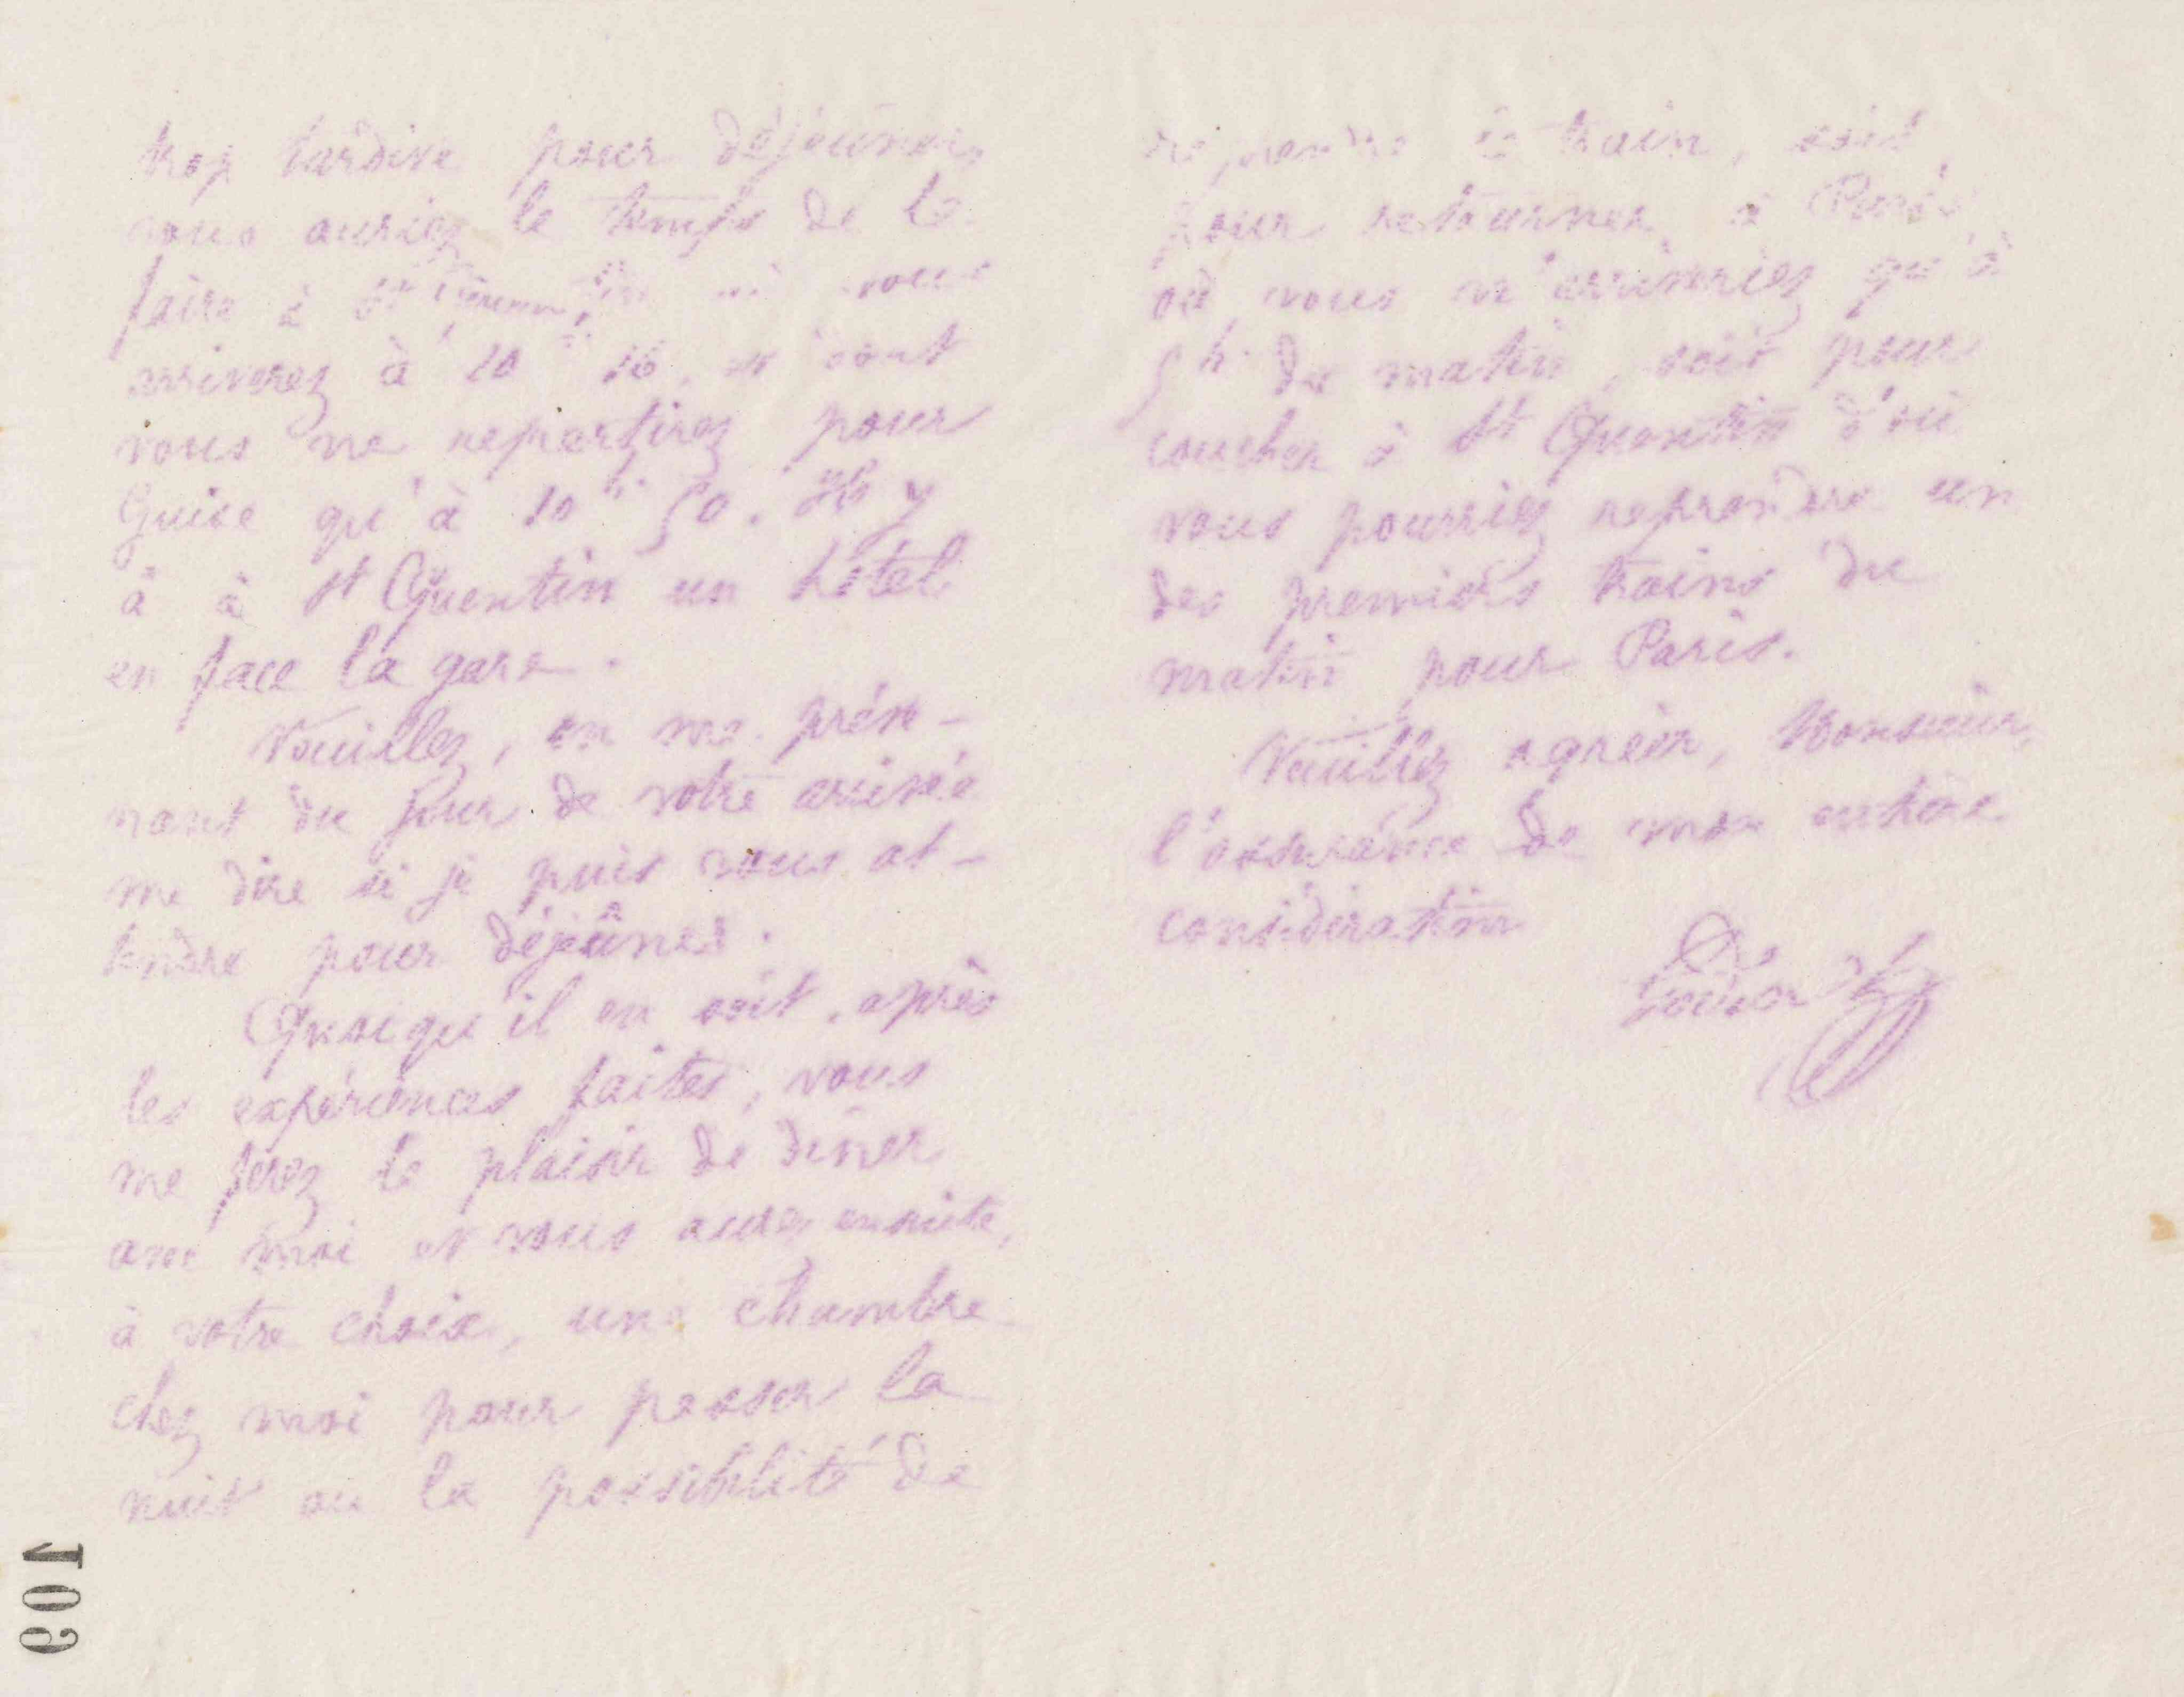 trop tardive pour déjeuner,
vous auriez le temps de le
faire à St Quentin où vous
arriverez à 10 h 16, et dont
vous ne repartirez pour
Guise qu'à 10h. 50. Il y
a à St Quentin un hôtel
en face la gare.
Veuillez, en me préve-
nant du jour de votre arrivée
me dire si je puis vous at-
tendre pour déjeûner.
Quoiqu'il en soit, après
les expériences faites, vous
me ferez le plaisir de dîner
avec moi et vous aurez ensuite,
à votre choix, une chambre
chez moi pour passer la
nuit ou la possibilité de
reprendre le train, soit
pour retourner à Paris
où vous n'arriveriez qu'à
5h. du matin, soit pour
coucher à St Quentin d'où
vous pourriez reprendre un
des premiers trains du
matin pour Paris.
Veuillez agréer, Monsieur,
l'assurance de mon entière
considération
Godin
109